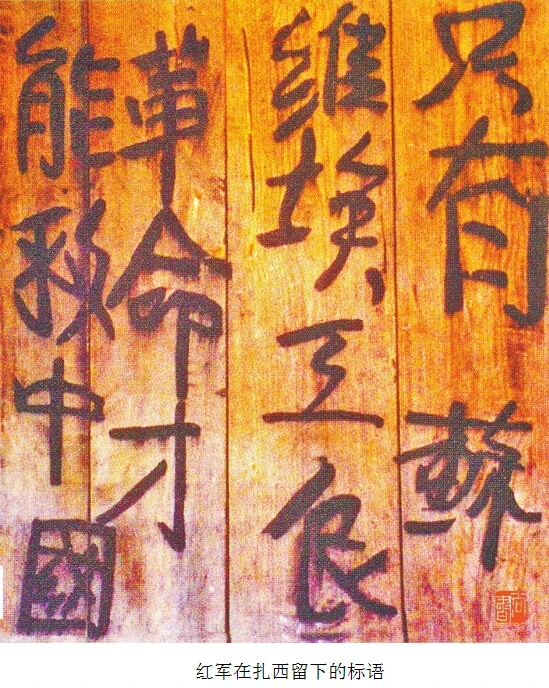 只有 蘇
維埃工农
革命才
能救中國
红军在扎西留下的标语